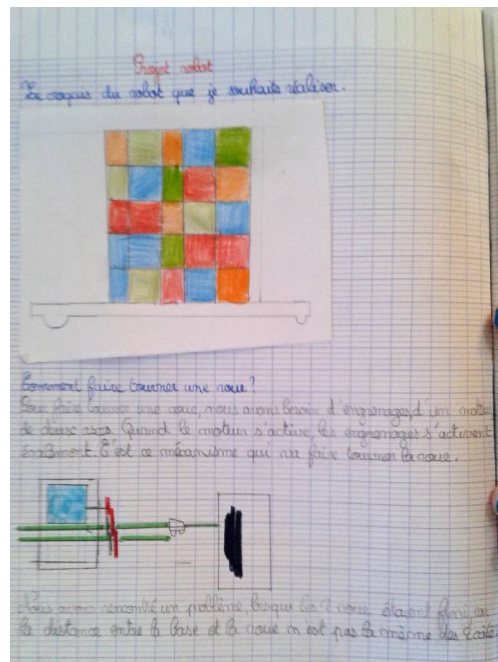 Projet robot
Le croquis du robot que je souhaite réaliser.
Comment faire tourner une roue?
Pour faire tourner une roue, nous avons besoin d'engrenages, d'un moteur
de deux axes. Quand le moteur s'active, les engrenages s'activent
C'est ce mécanisme qui va faire tourner la roue.
Nous avons rencontré un problème, lorsque les 2 roue étaient
la distance entre la base et la roue n est pas la même des 2 côté